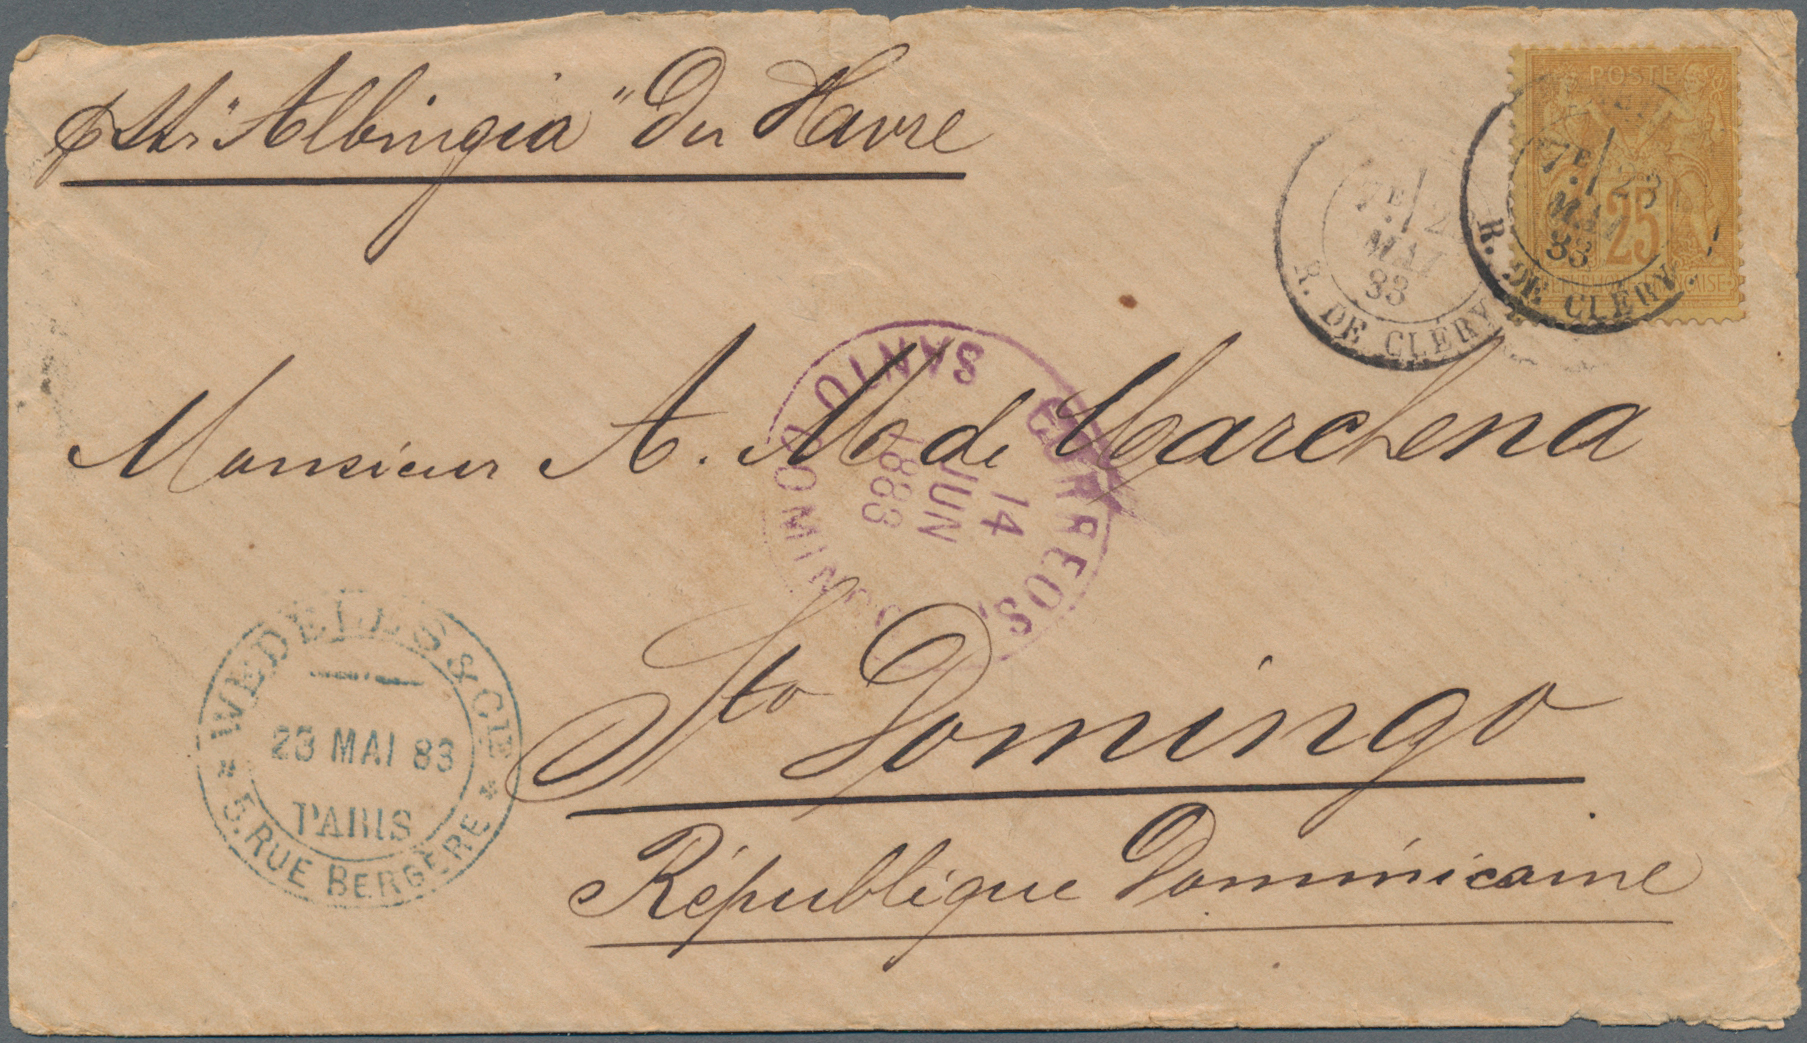 p Str "Albingia" du Havre
POSTE
25
RÉPUBLIQUE FRANÇAISE
7E 23
MAI
83
R. DE CLÉRY
7E 2
MAI
83
R. DE CLÉRY
CORREOS,
SANTO DOMINGO
14
JUN
1883
Monsieur A. M. de Marchena
Sto Domingo
République Dominicaine
WEDELLS & CIE
23 MAI 83
PARIS
5, RUE BERGÈRE